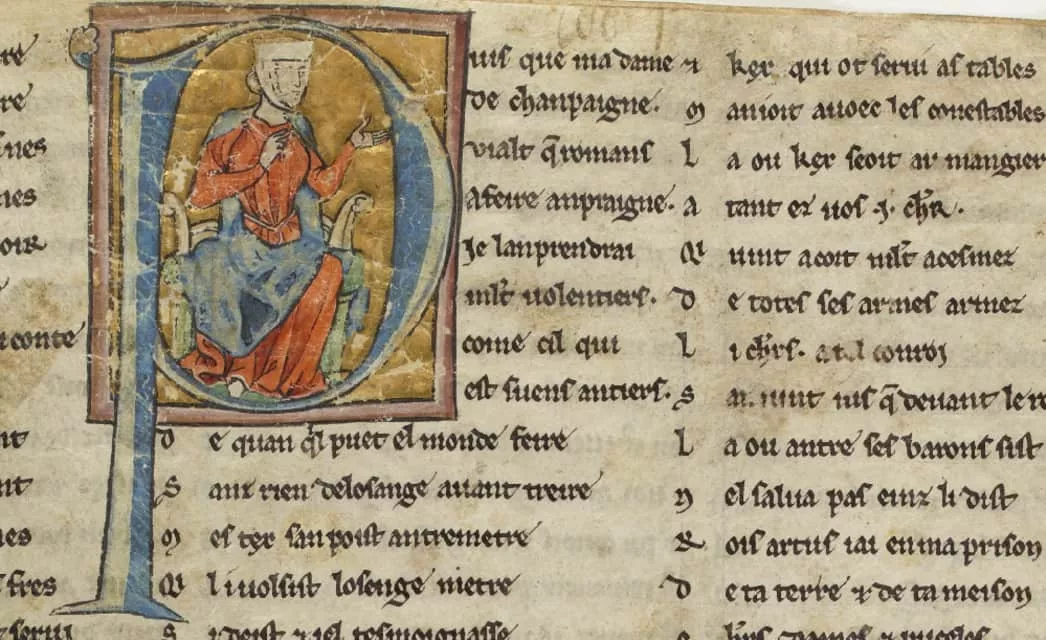 re
re
nes
ies
oir
conte
nt
nt
es
fres
serui
Puis que ma dame
de chanpaigne.
vialt q̄ romans
a feire anpraigne.
Je lanprendrai
mlt̃ uolentiers.
come cil qui
est suens antiers.
D e quan q̃l puet el monde feire
S anz rien delosange auant treire
M es tex san poist antremetre
Q i li uolsist losenge metre
S i deist ⁊ iel tesmoignasse
⁊ kex qui ot serui as tables
M anioit auoec les conestables
L a ou kex seoit au mangier
a tant ez uos .i. chr̃.
Q ui uint a cort mlt̃ acesmez
D e totes ses armes armez
L i chr̃s. a tel conroi
S an uint iusq̄ deuant le ro
L a ou antre ses barons sist
N el salua pas einz li dist
R ois artus iai en ma prison
D e ta terre ⁊ de ta meison